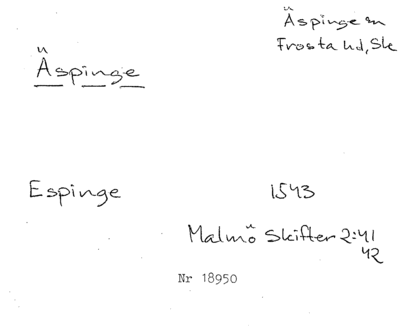 Äspinge sn
Frosta hd, Sk
Äspinge
Espinge 1543
Malmö Skifter 2:41
42
Nr 18950